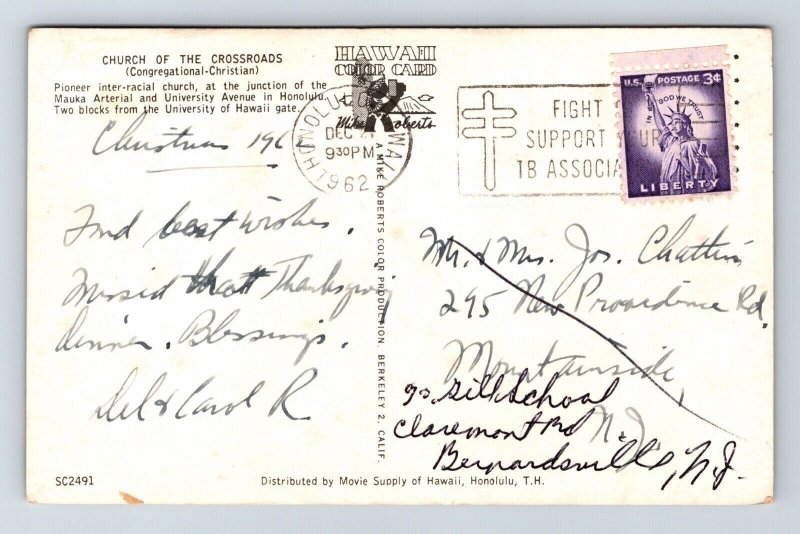 CHURCH OF THE CROSSROADS
(Congregational-Christian)
Pioneer inter-racial church, at the junction of the
Mauka Arterial and University Avenue in Honolulu.
Two blocks from the University of Hawaii gate.
HAWAII
COLOR CARD
Mike Roberts
HONOLULU HAWAII
DEC
9 30 PM
1962
FIGHT
SUPPORT YOUR
TB ASSOCIA
U.S. POSTAGE 3¢
IN GOD WE TRUST
LIBERTY
Christmas 1962
And best wishes.
Missed that Thanksgiving
dinner. Blessings.
Del & Carol R
A MIKE ROBERTS COLOR PRODUCTION. BERKELEY 2, CALIF.
Mr. & Mrs. Jos. Chattin
295 New Providence Rd.
Mountainside,
N.J.
% Gill School
Claremont Rd
Bernardsville, N.J.
SC2491
Distributed by Movie Supply of Hawaii, Honolulu, T.H.